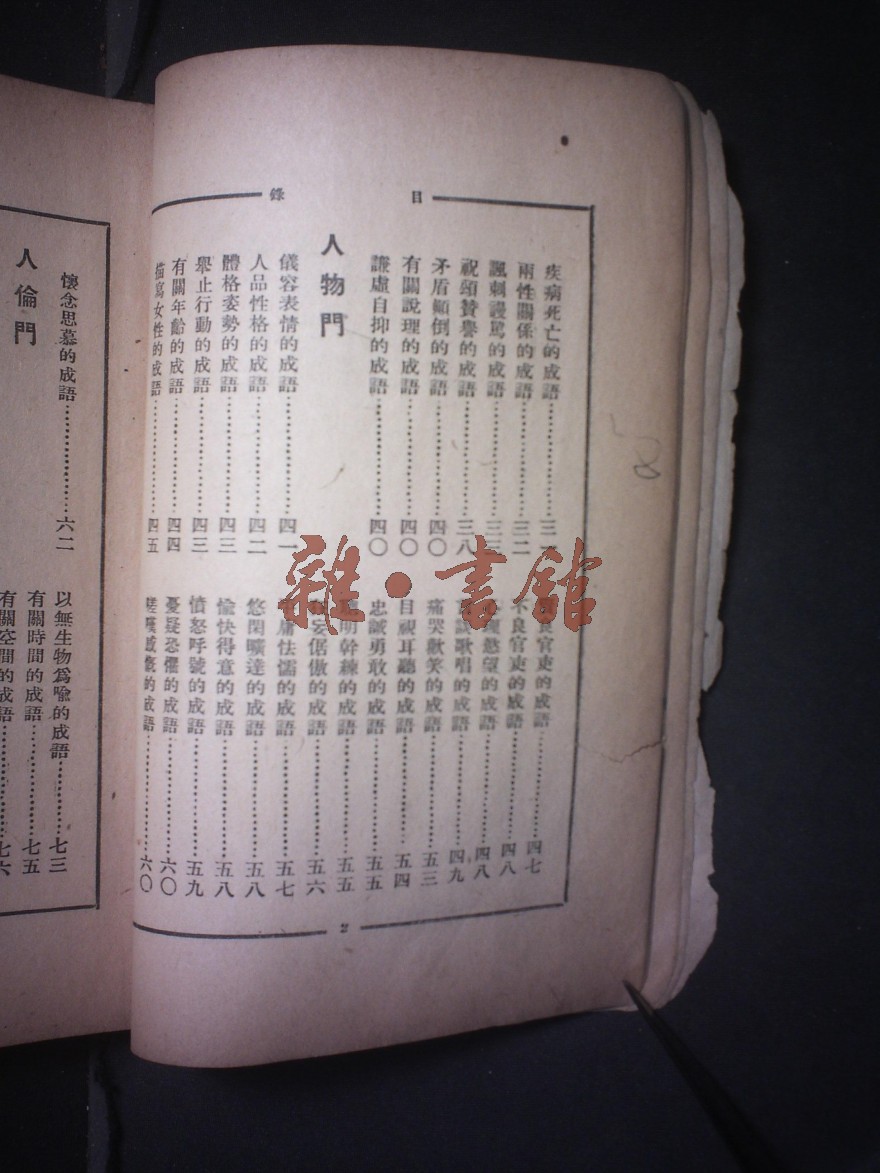 目錄
疾病死亡的成語
兩性關係的成語 三二
諷刺謾罵的成語 三三
祝頌贊譽的成語 三八
矛盾顚倒的成語 四〇
有關說理的成語 四〇
謙虛自抑的成語 四〇
人物門
儀容表情的成語 四一
人品性格的成語 四二
體格姿勢的成語 四三
舉止行動的成語 四三
有關年齡的成語 四四
描寫女性的成語 四五
良官吏的成語 四七
不良官吏的成語 四八
慾望的成語 四八
歌唱的成語 四九
痛哭歡笑的成語 五三
目視耳聽的成語 五四
忠誠勇敢的成語 五五
聰明幹練的成語 五五
妄倨傲的成語 五六
庸怯懦的成語 五七
悠閑曠達的成語 五八
愉快得意的成語 五八
憤怒呼號的成語 五九
憂疑恐懼的成語 六〇
嗟嘆感慨的成語 六〇
2
懷念思慕的成語 六二
人倫門
以無生物爲喩的成語 七三
有關時間的成語 七五
有關空間的成語 七六
雜·書館